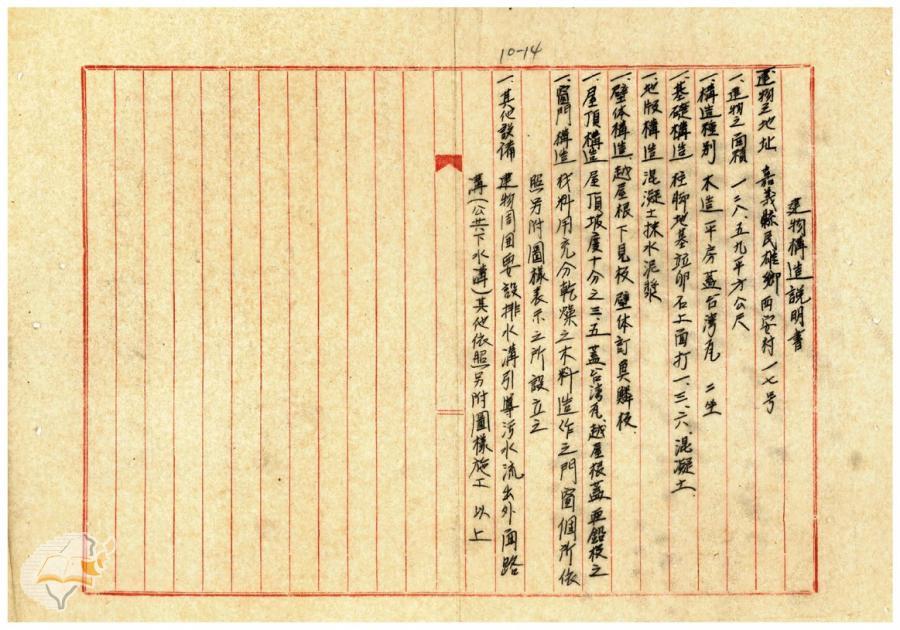 10-14
建物構造説明書
建物之地址 嘉義縣民雄鄉西安村一七号
一、建物之面積 一二八、五九平方公尺
一、構造種別 木造平房蓋台湾瓦 二坐
一、基礎構造 柱脚地基竝卵石上面打一、三、六、混凝土
一、地版構造 混凝土抹水泥漿
一、壁体構造 越屋根下見板壁体訂魚鱗板
一、屋頂構造 屋頂坡度十分之三、五蓋台湾瓦、越屋根蓋亜鉛板之
一、窗門構造 材料用充分乾燥之木料造作之門窗個所依
照另附圖樣表示之所設立之
一、其他設備 建物周囲要設排水溝引導污水流出外面路
溝(公共下水溝)其他依照另附圖樣施工 以上